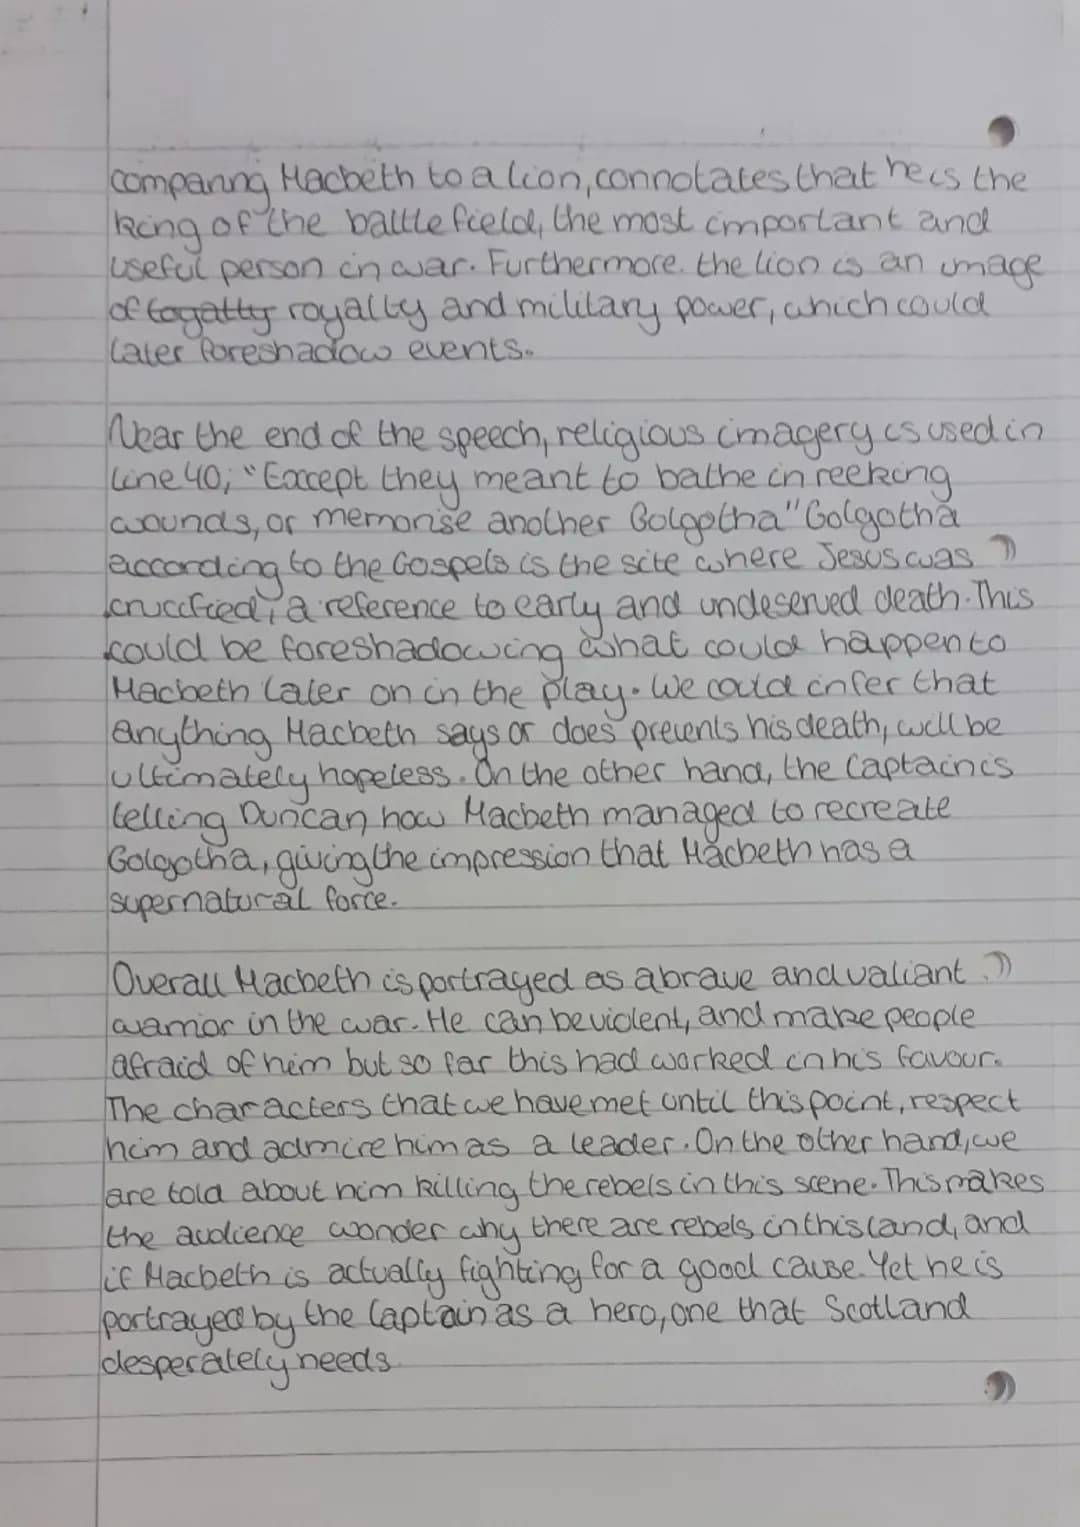 comparing Macbeth to a lion, connotates that he is the
king of the battlefield, the most important and
useful person in war. Furthermore. the lion is an image
of royalty and military power, which could
later foreshadow events.
Near the end of the speech, religious imagery is used in
line 40; "Except they meant to bathe in reeking
wounds, or memorise another Golgotha" Golgotha
according to the Gospels is the site where Jesus was
crucified; a reference to early and undeserved death. This
could be foreshadowing what could happen to
Macbeth later on in the play. We could infer that
anything Macbeth says or does prevents his death, will be
ultimately hopeless. On the other hand, the Captain is
telling Duncan how Macbeth managed to recreate
Golgotha, giving the impression that Macbeth has a
supernatural force.
Overall Macbeth is portrayed as a brave and valiant
warrior in the war. He can be violent, and make people
afraid of him but so far this had worked in his favour.
The characters that we have met until this point, respect
him and admire him as a leader. On the other hand, we
are told about him killing the rebels in this scene. This makes
the audience wonder why there are rebels in this land, and
if Macbeth is actually fighting for a good cause. Yet he is
portrayed by the Captain as a hero, one that Scotland
desperately needs